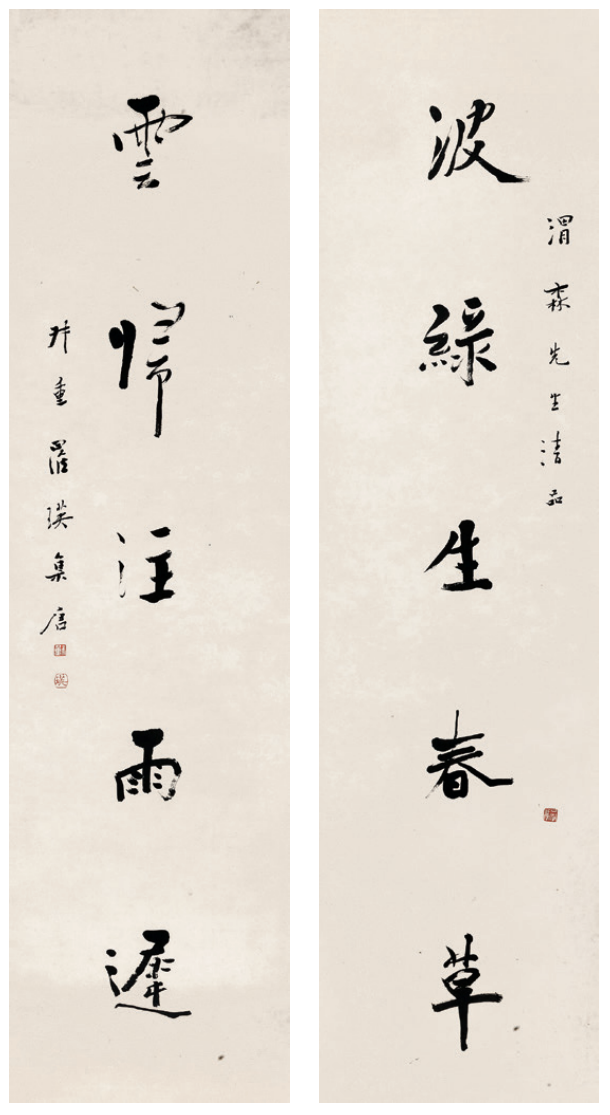 渭森先生清品
波綠生春草
雲歸注雨遲
叔重羅瑛集唐